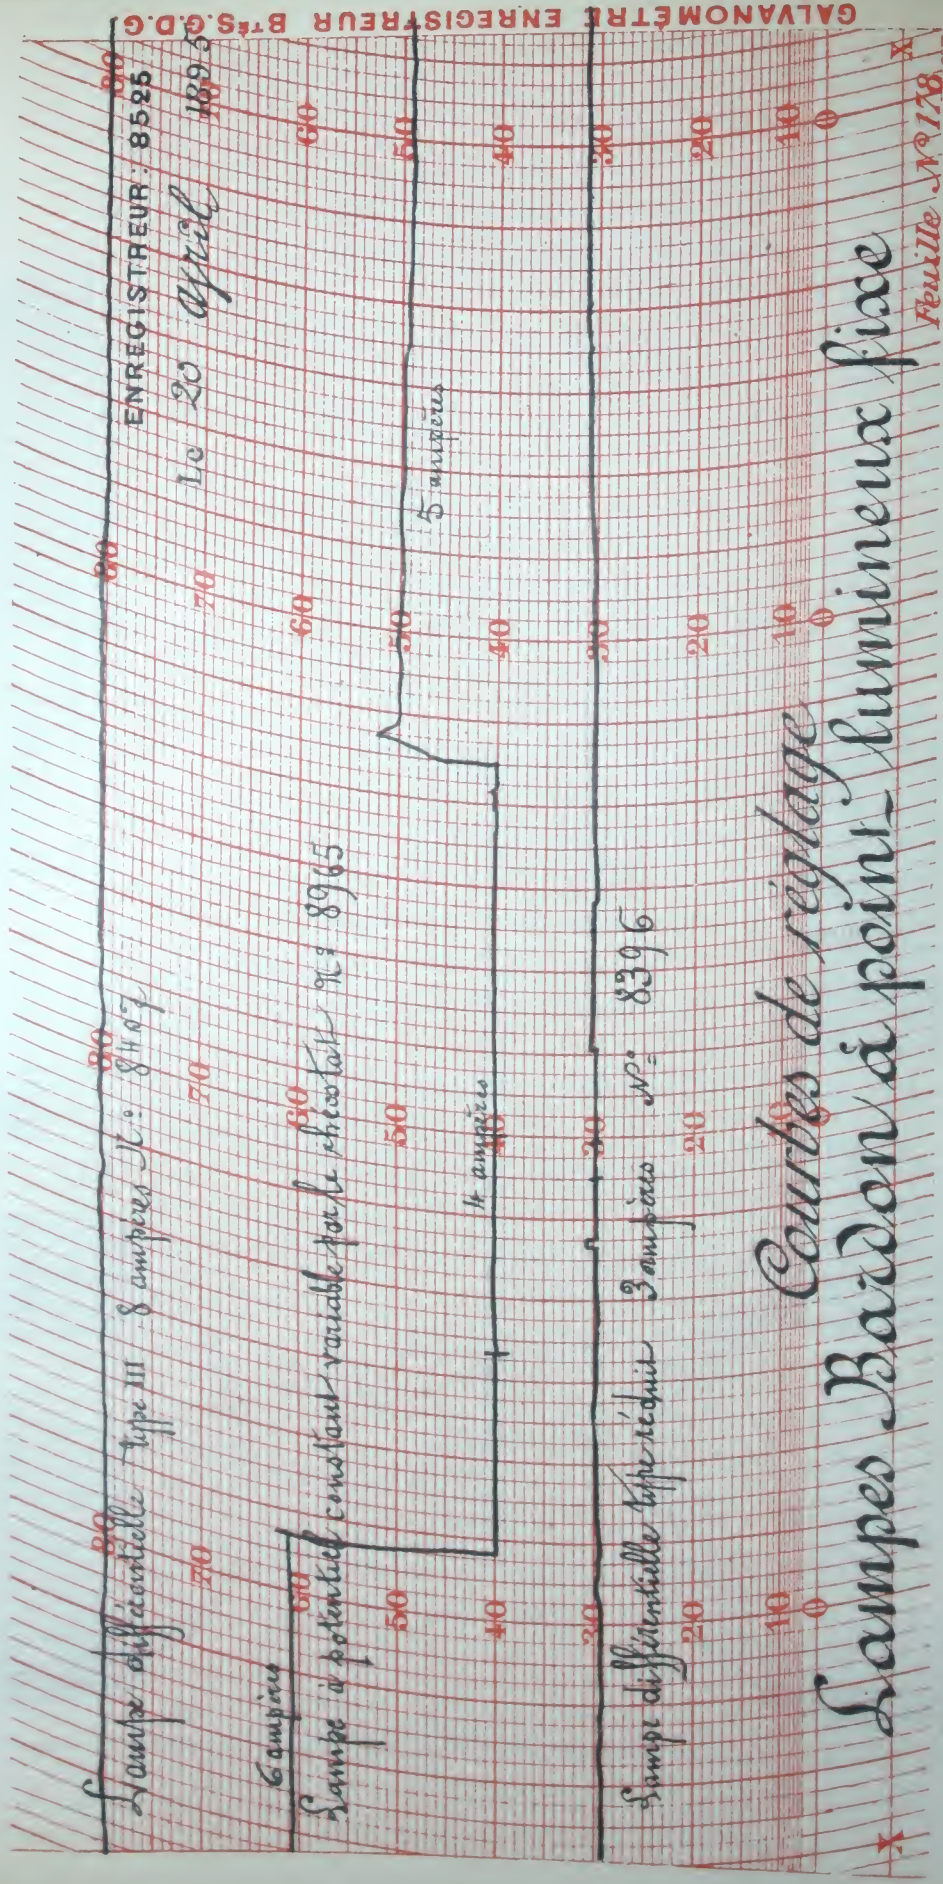 GALVANOMÈTRE ENREGISTREUR BTÉS.G.D.G
ENREGISTREUR: 8525
Le 20 April 1895
80 80 80 80
Lampe différentielle type III 8 ampères N:º
70 70 70 70
6 ampères
60 60 60 60
Lampe à potentiel constant variable par le rhéostat n:º 8965
50 50 50 50
5 ampères
4 ampères
40 40 40 40
30 30 30 30
Lampe différentielle type réduit 3 ampères Nº 8396
20 20 20 20
10 10 10 10
0 0 0 0
Courbes de réglage
Lampes Bardon à point lumineux fixe
X X
Feuille Nº 178